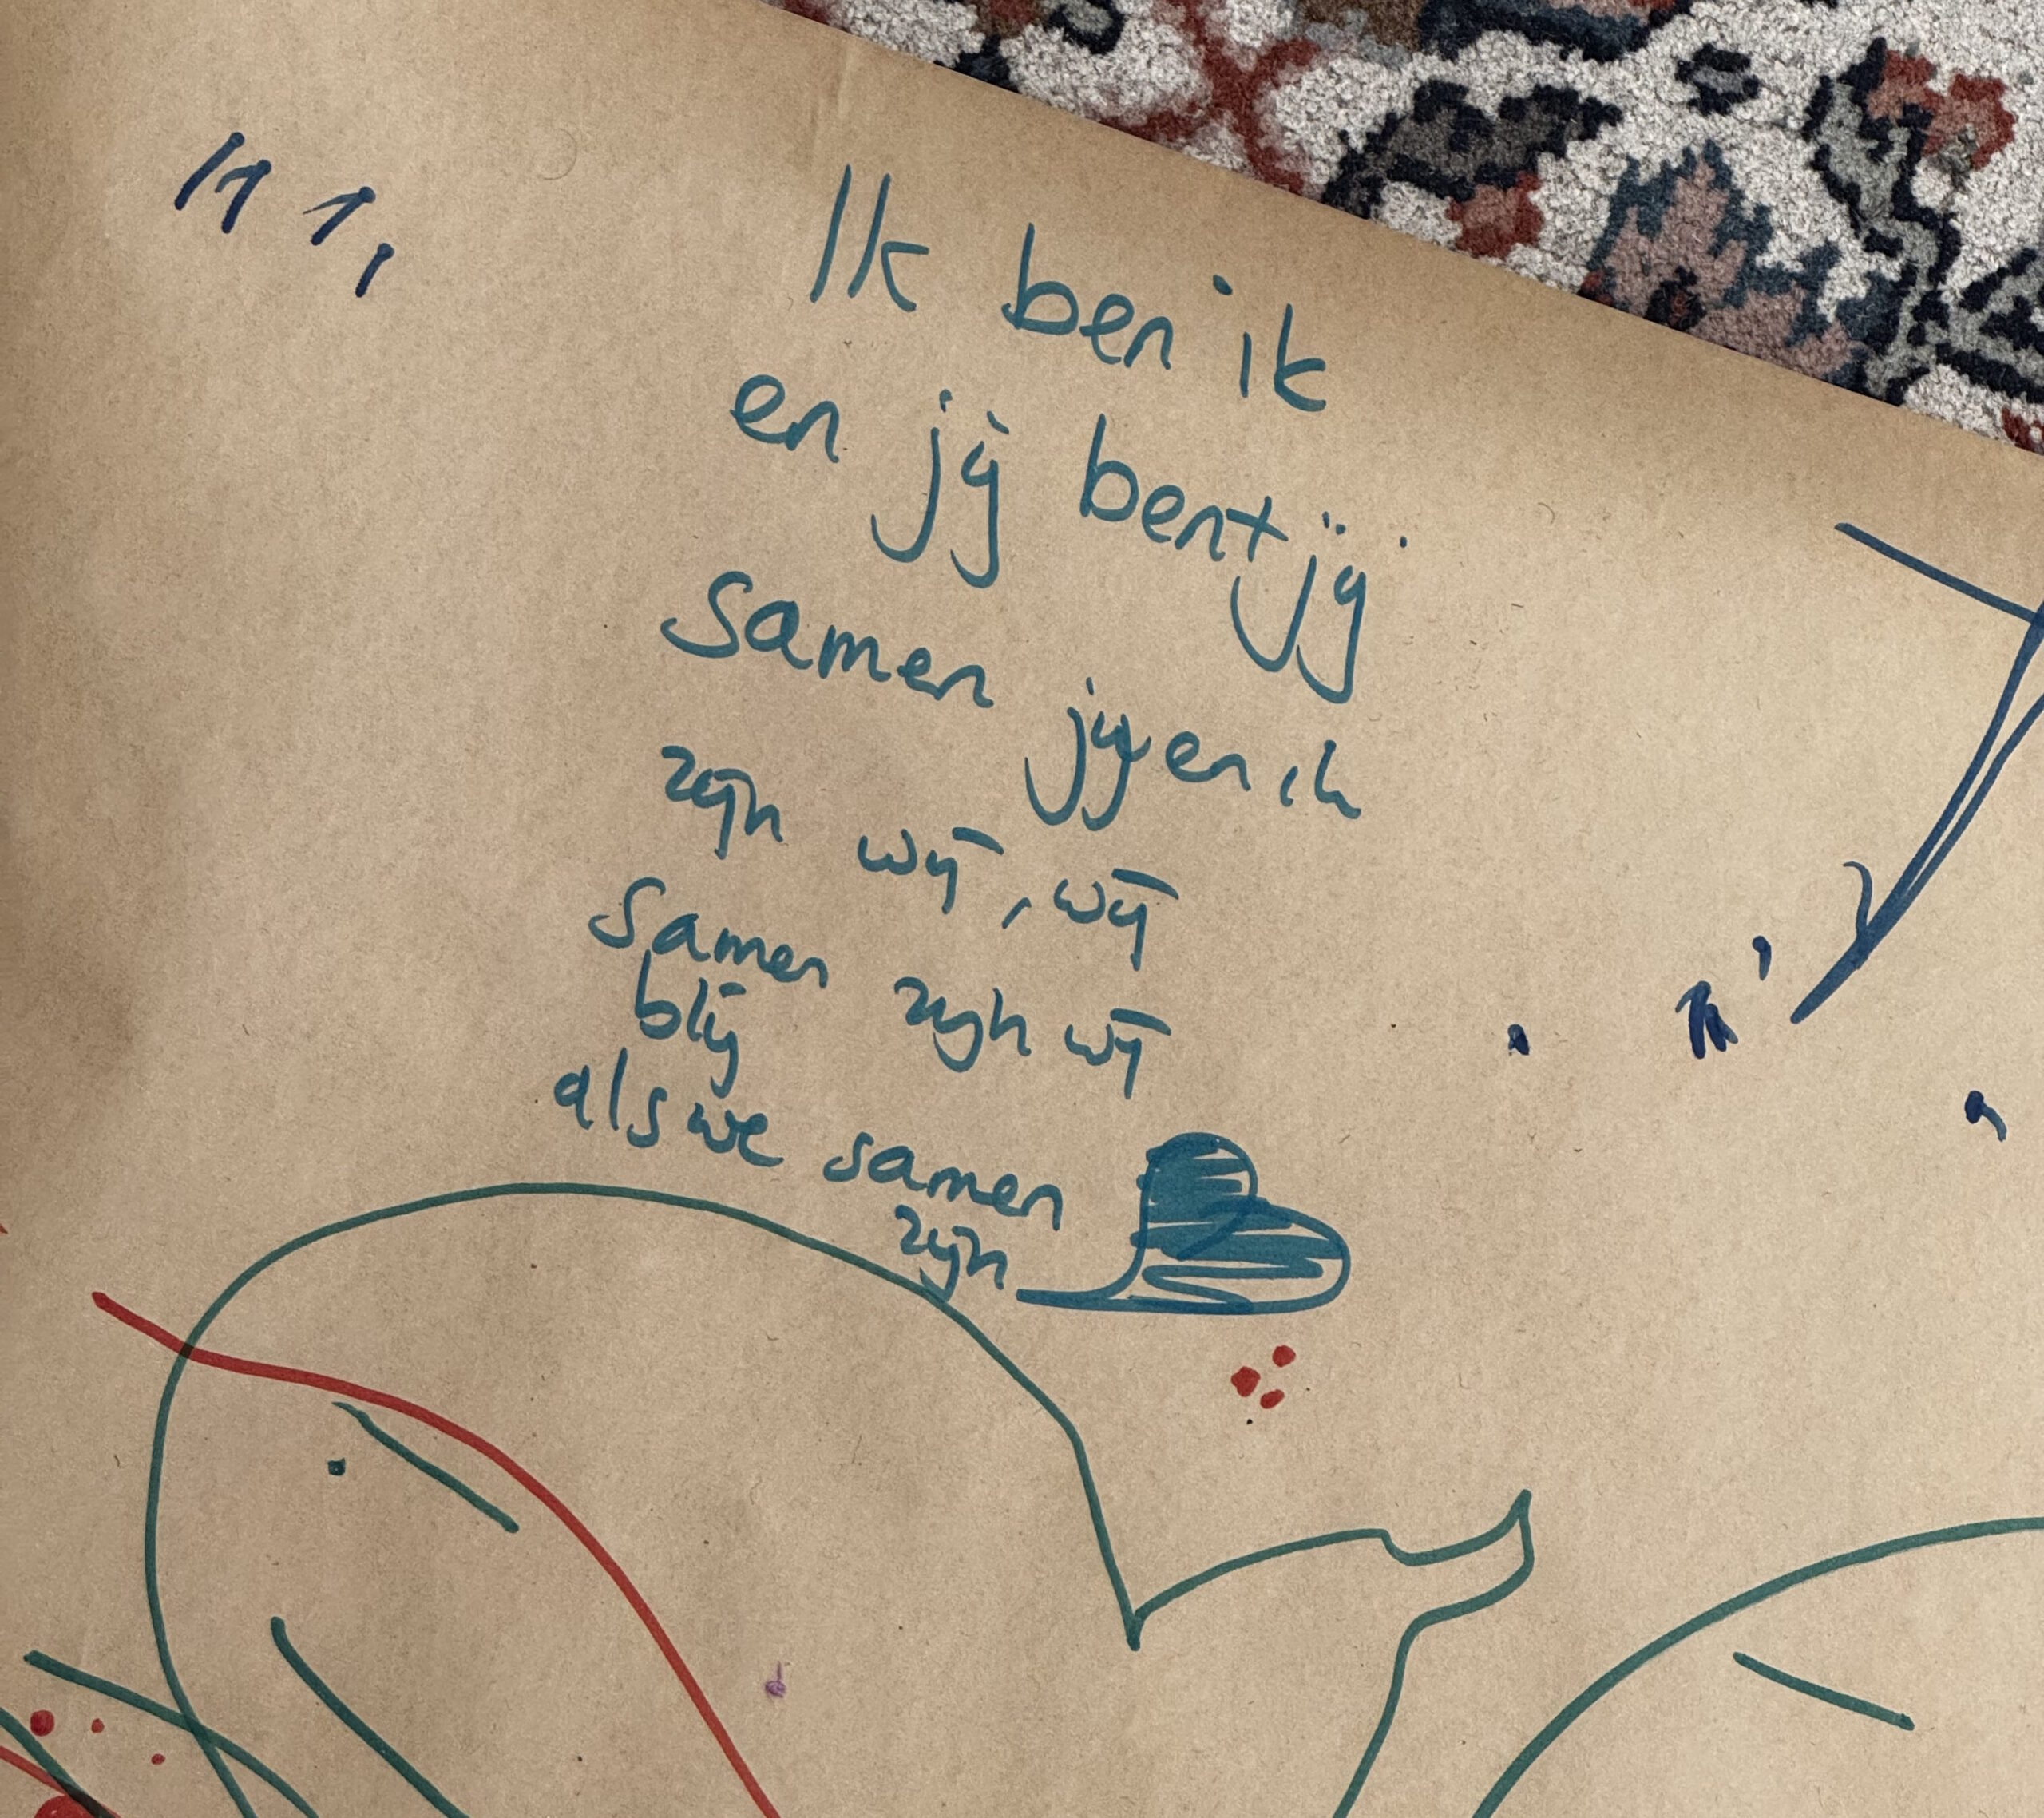 Ik ben ik
en jij bent jij
samen jij en ik
zijn wij, wij
samen zijn wij
blij
als we samen
zijn